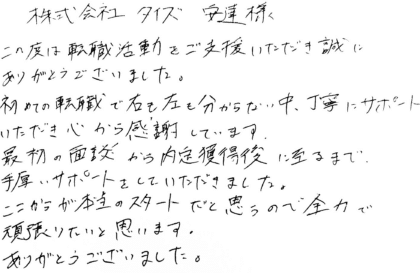 株式会社 タイズ 安達様
この度は転職活動をご支援いただき誠に
ありがとうございました。
初めての転職で右も左も分からない中、丁寧にサポート
いただき心から感謝しています。
最初の面談から内定獲得後に至るまで、
手厚いサポートをしていただきました。
ここからが本当のスタートだと思うので全力で
頑張りたいと思います。
ありがとうございました。